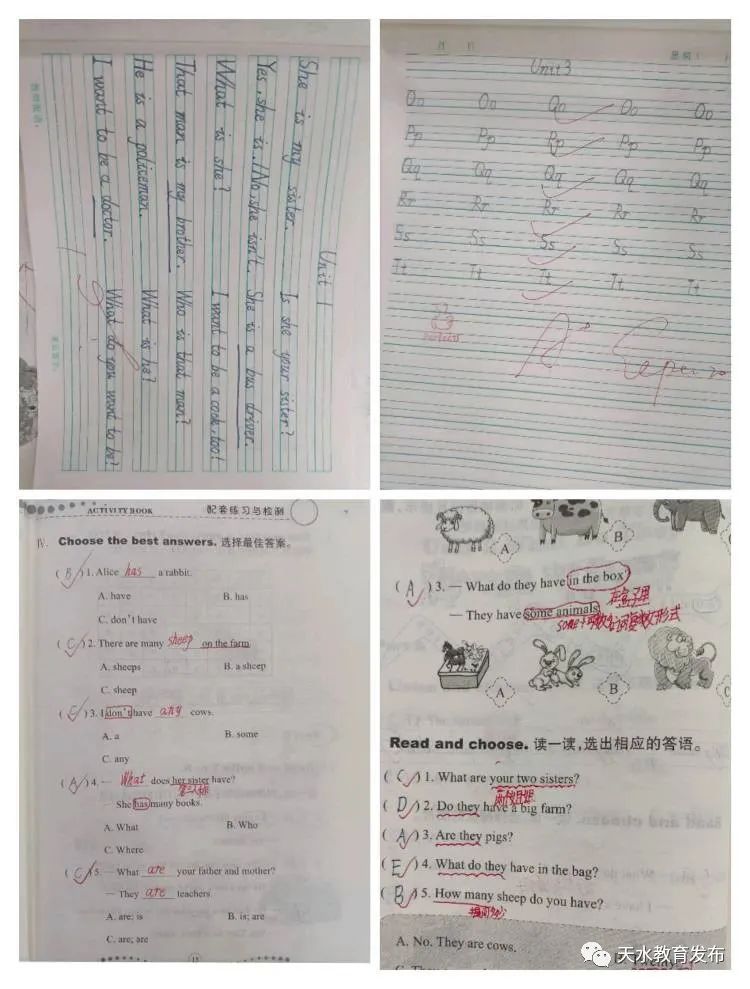 Unit 1
She is my sister. Is she your sister?
Yes, she is. / No, she isn't. She is a bus driver.
What is she? I want to be a cook, too!
That man is my brother. Who is that man?
He is a policeman. What is he?
I want to be a doctor. What do you want to be?
Unit 3
Oo Oo Oo Oo Oo
Pp Pp Pp Pp Pp
Qq Qq Qq Qq Qq
Rr Rr Rr Rr Rr
Ss Ss Ss Ss Ss
Tt Tt Tt Tt Tt
ACTIVITY BOOK 配套练习与检测
IV. Choose the best answers. 选择最佳答案。
( B ) 1. Alice has a rabbit.
A. have B. has
C. don't have
( C ) 2. There are many sheep on the farm
A. sheeps B. a sheep
C. sheep
( C ) 3. I don't have any cows.
A. a B. some
C. any
( A ) 4. — What does her sister have?
第三人称
— She has many books.
A. What B. Who
C. Where
( C ) 5. — What are your father and mother?
— They are teachers.
A. are; is B. is; are
C. are; are
A B
( A ) 3. — What do they have in the box?
在盒子里
— They have some animals.
A B C
Read and choose. 读一读,选出相应的答语。
( C ) 1. What are your two sisters?
( D ) 2. Do they have a big farm?
( A ) 3. Are they pigs?
( E ) 4. What do they have in the bag?
( B ) 5. How many sheep do you have?
A. No. They are cows.
天水教育发布